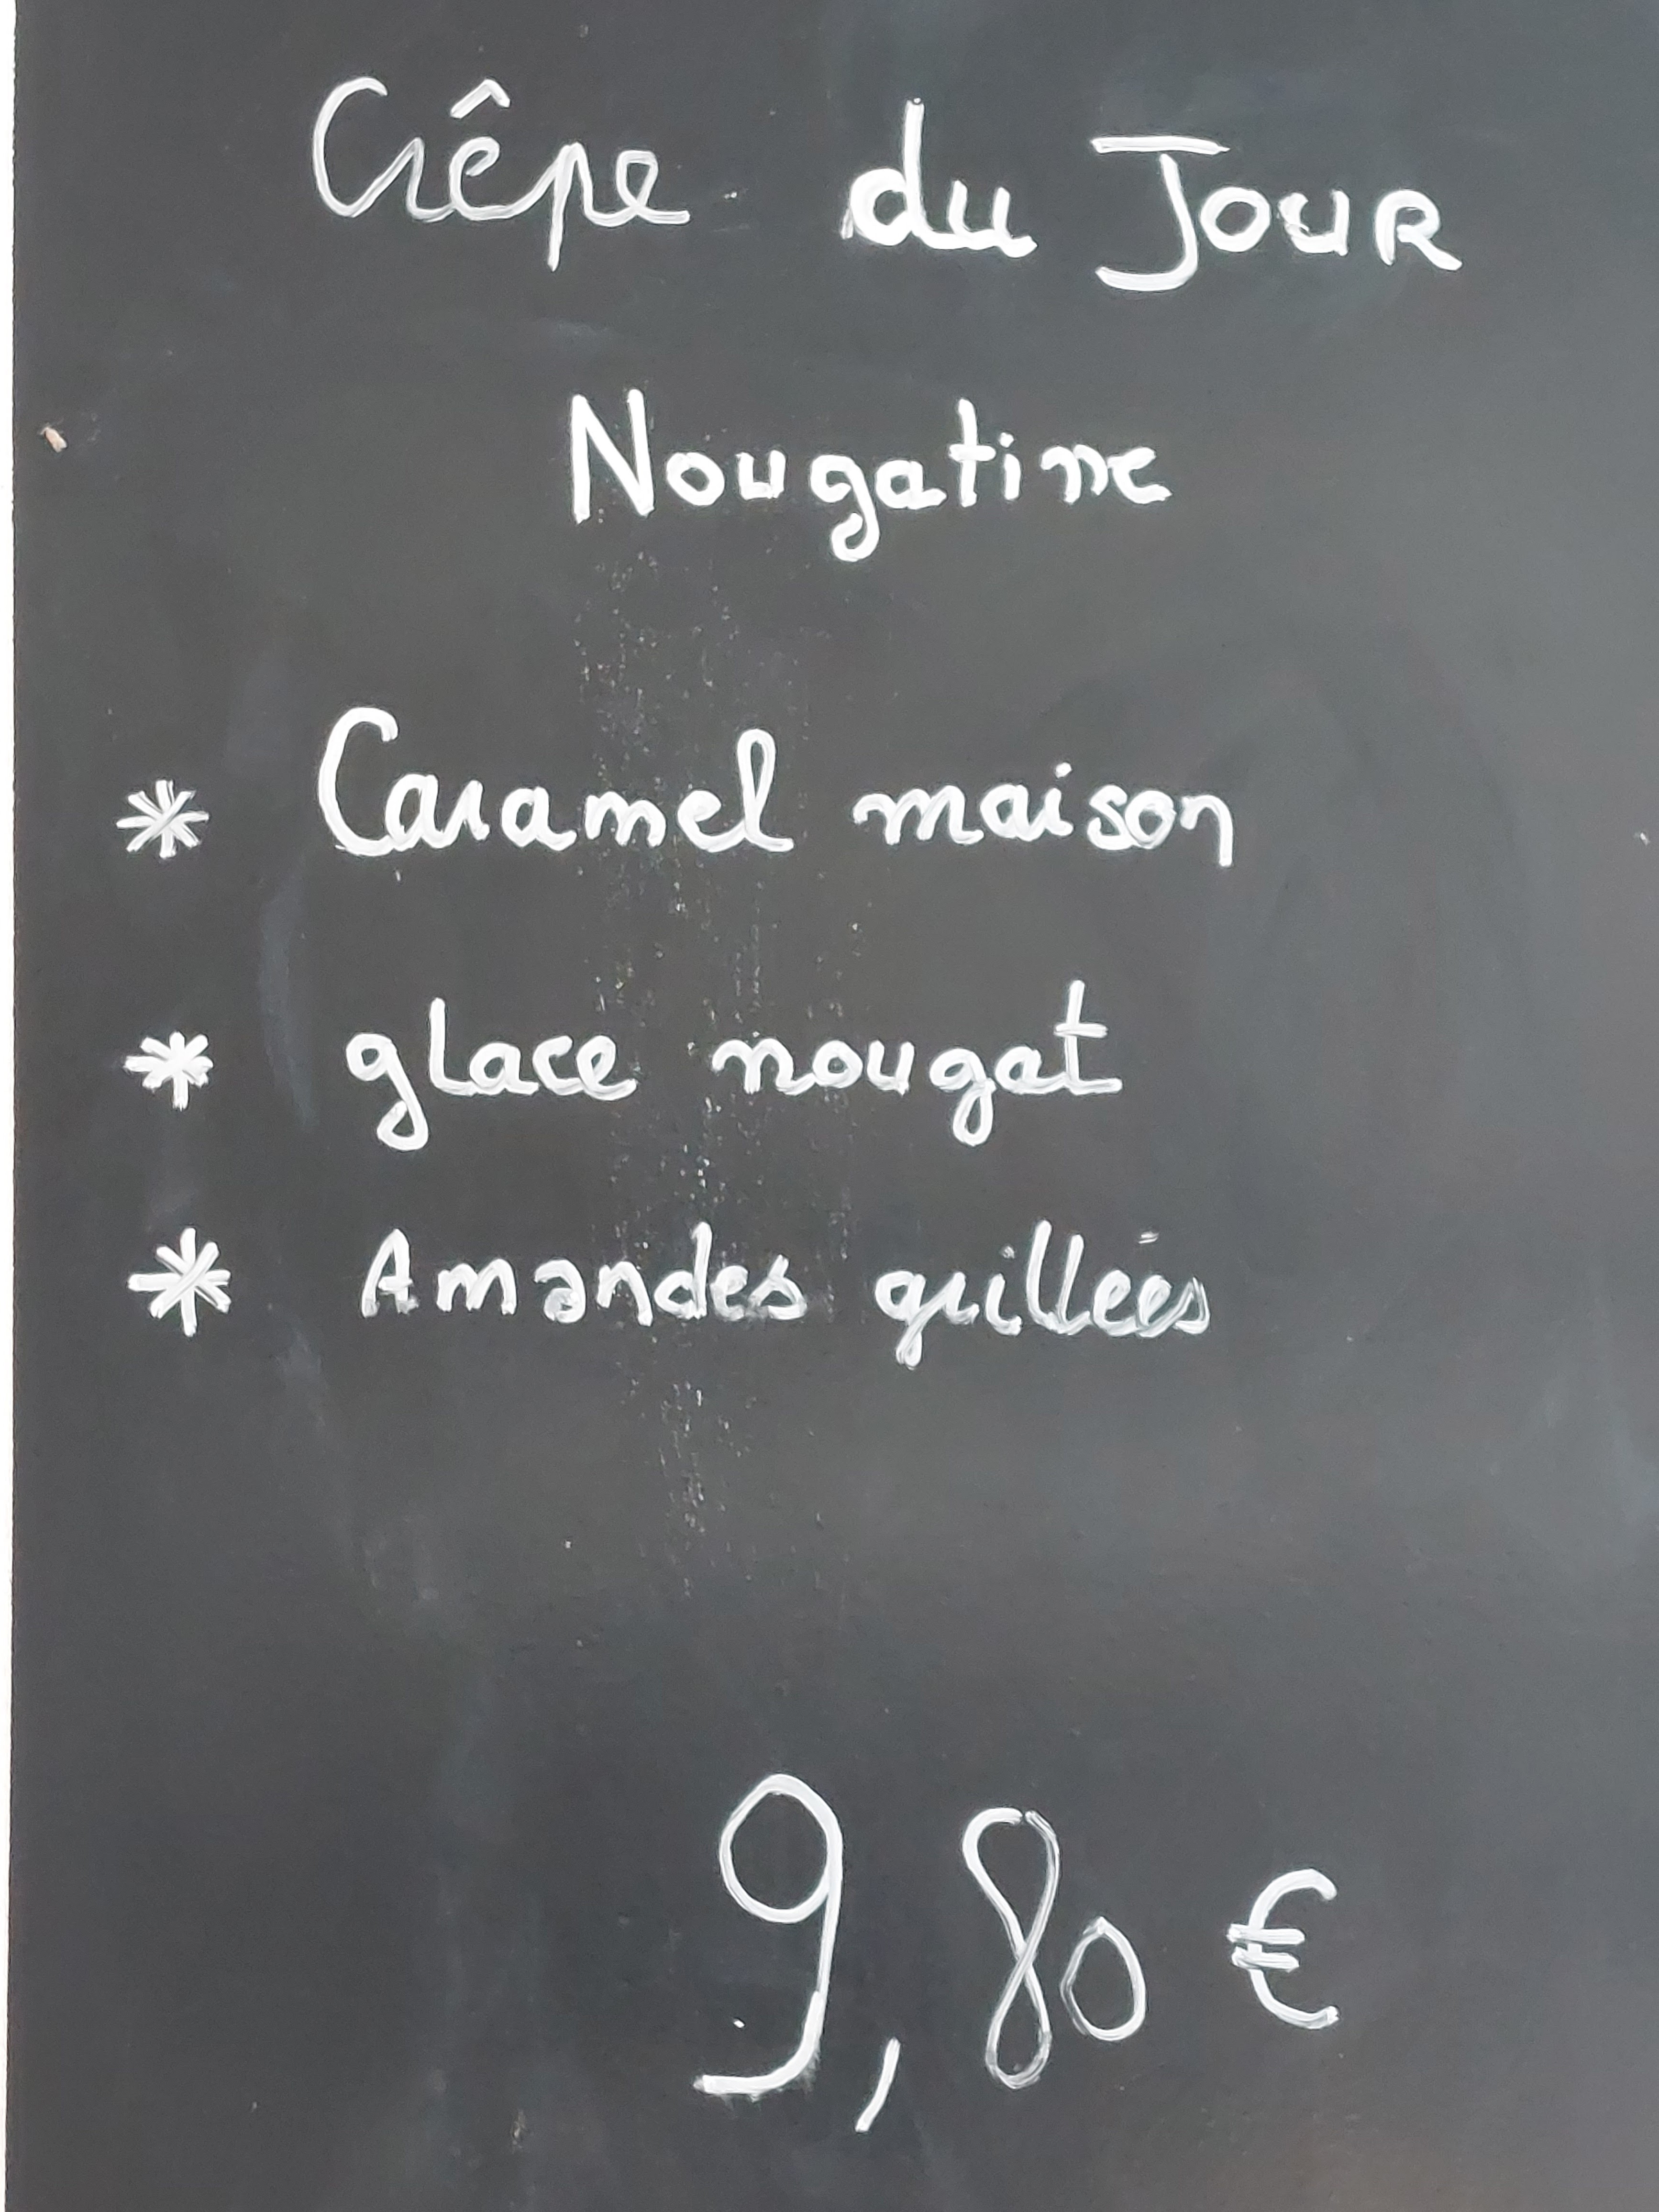 Crêpe du Jour
Nougatine
* Caramel maison
* glace nougat
* Amandes grillées
9,80 €